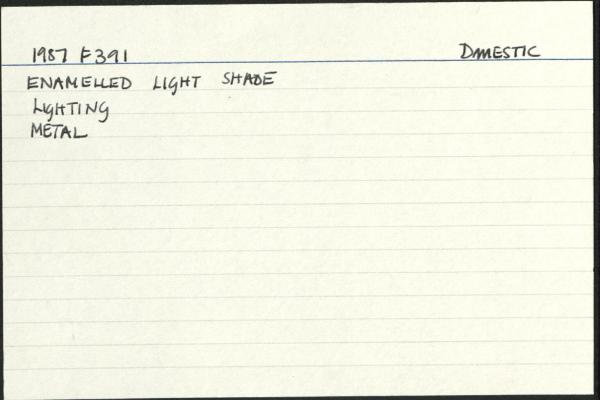 1987 F391 DOMESTIC
ENAMELLED LIGHT SHADE
LIGHTING
METAL